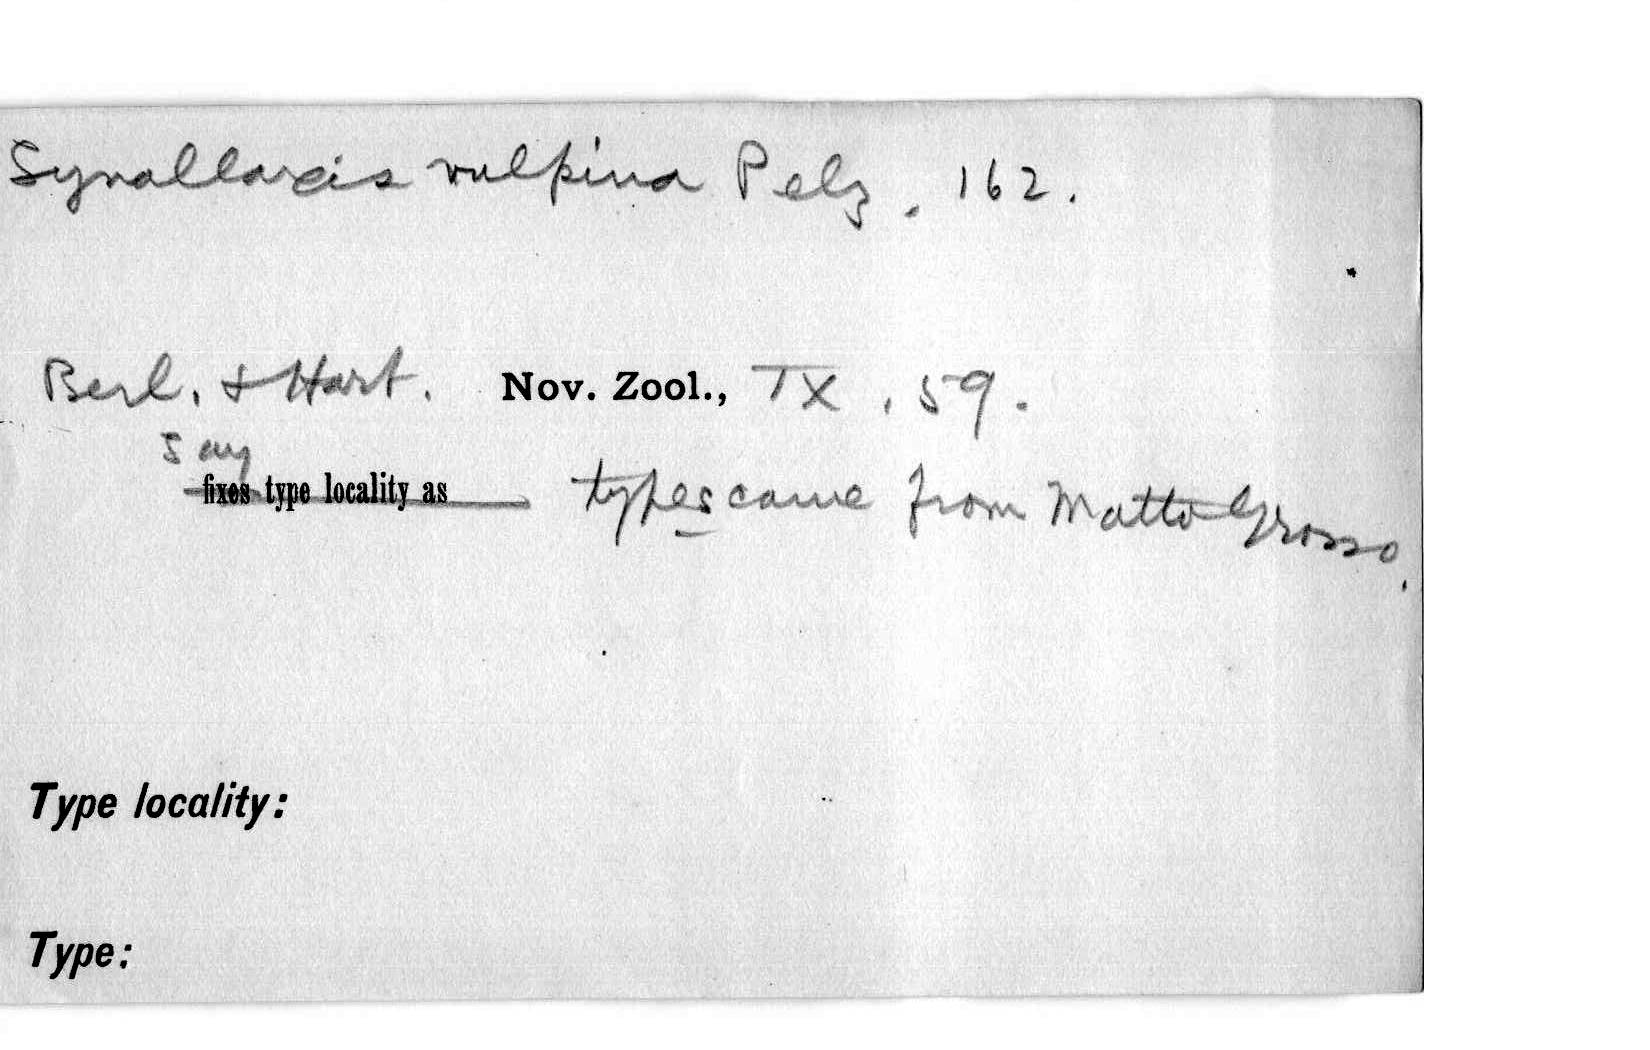 Synallaxis vulpina Pelz. 162.
Berl. & Hart. Nov. Zool., IX, 59.
say
fixes type locality as types came from Matto Grosso.
Type locality:
Type: